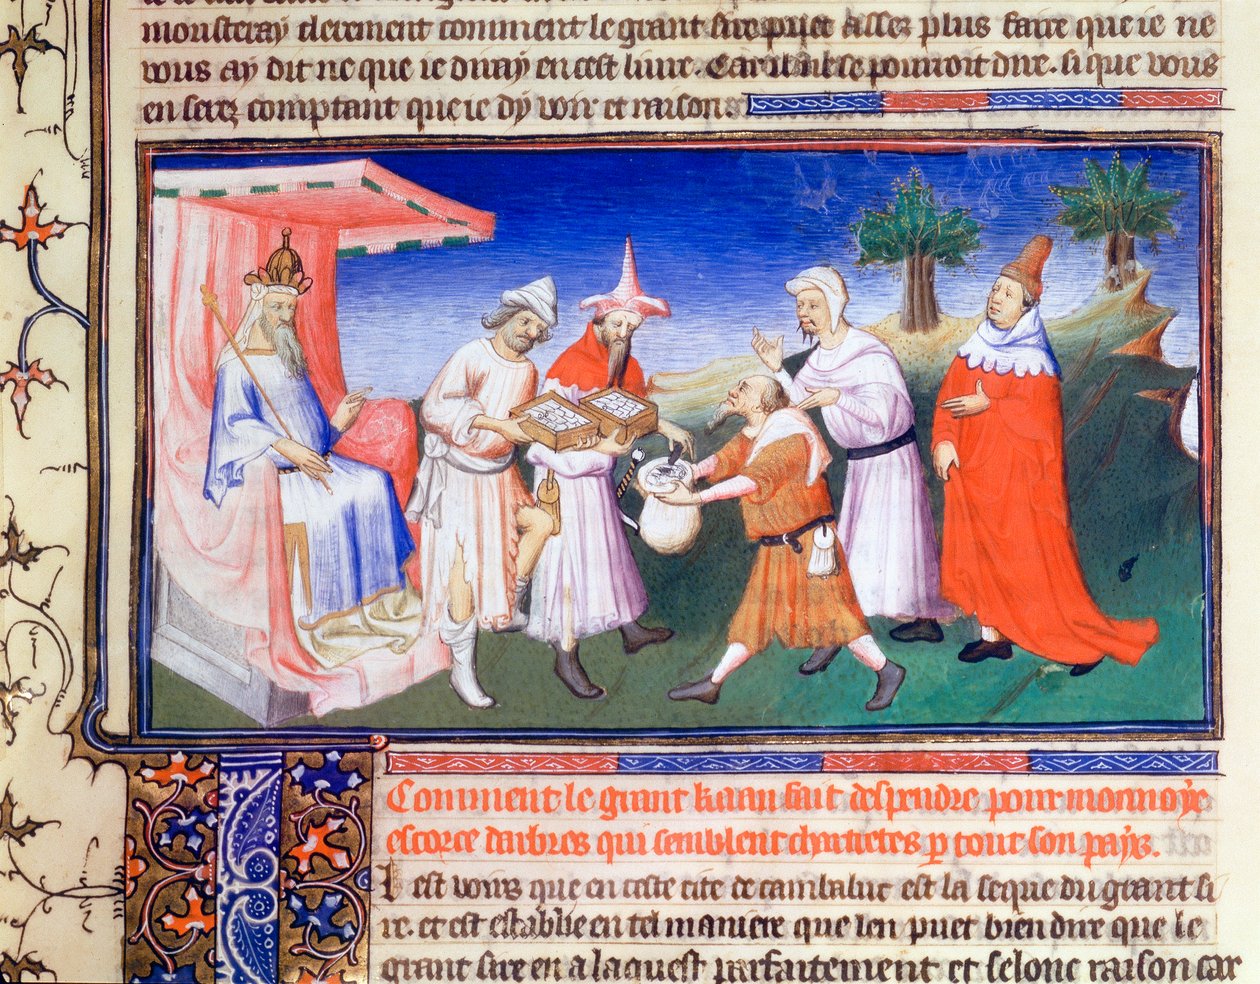 monstreray clerement comment le grant sire puet assez plus faire que ie ne
vous ay dit ne que ie diray en cest liure. Car il ailse pouroit dire. si que vous
en serez comptant que ie dy voir et raison.
Comment le grant kaan fait despendre pour monnoye
escorce darbres qui semblent chartretes p tout son pays.
Il est voirs que en ceste cite de cambaluc est la seque du grant si
re. et est establie en tel maniere que len puet bien dire que le
grant sire en a laquest parfaitement et selonc raison car